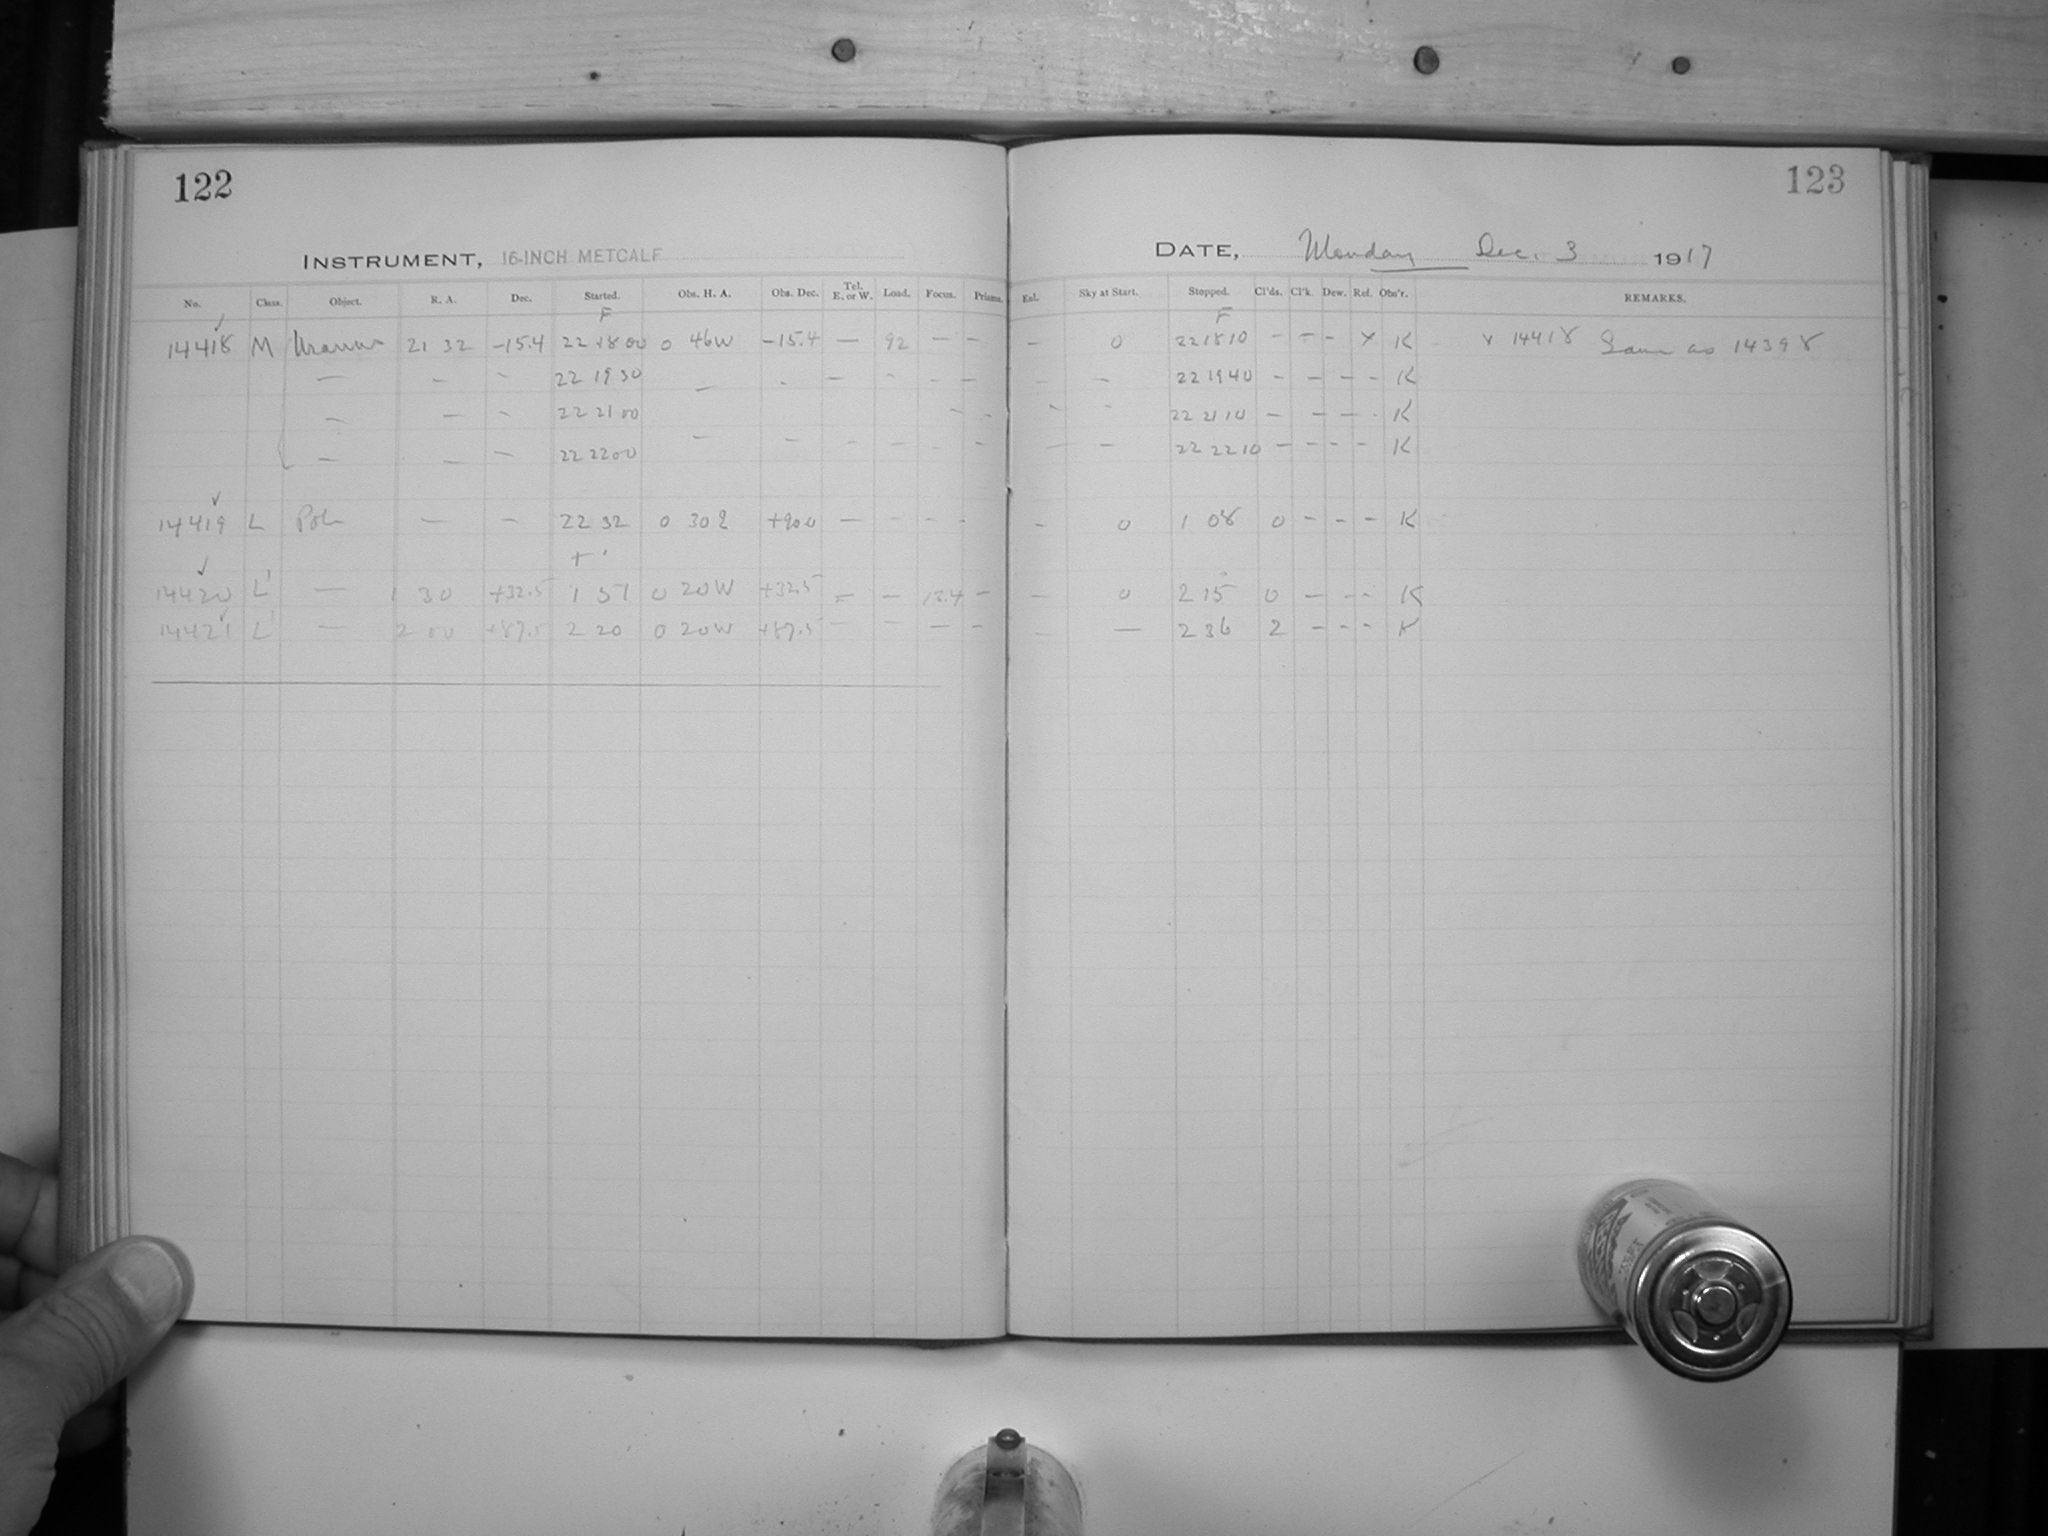 122
123
INSTRUMENT, 16-INCH METCALF
DATE, Monday Dec. 3 1917
No. Class. Object. R. A. Dec. Started. Obs. H. A. Obs. Dec. Tel. E. or W. Load. Focus. Prisms. Ext. Sky at Start. Stopped. Cl'ds. Cl'k. Dew. Ref. Obs'r. REMARKS.
F F
14418 M Uranus 21 32 -15.4 22 18 00 0 46W -15.4 — 92 — — — 0 22 18 10 - - - x K x 14418 Same as 14398
— - - 22 19 30 — - — - - — - — 22 19 40 - - - - K
— — - 22 21 00 - - - - 22 21 10 — — — - K
— — — 22 22 00 — — - - - - — — 22 22 10 - - - - K
14419 L Pole — — 22 32 0 30E +90.0 — - - - - 0 1 08 0 - - - K
14420 L' — 1 30 +32.5 1 51 0 20W +32.5 = — 13.4 - — 0 2 15 0 — - - K
14421 L' — 2 00 +87.5 2 20 0 20W +87.5 - - — - - — 2 36 2 - - - K